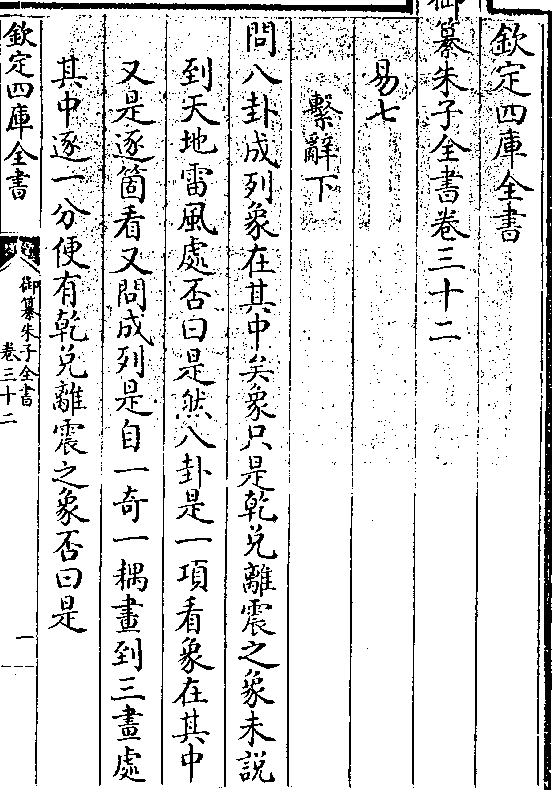 欽定四庫全書
御纂朱子全書卷三十二
易七
繫辭下
問八卦成列象在其中矣象只是乾兌離震之象未說
到天地雷風處否曰是然八卦是一項看象在其中
又是逐箇看又問成列是自一奇一耦畫到三畫處
其中逐一分便有乾兌離震之象否曰是
欽定四庫全書
御纂朱子全書
卷三十二
一